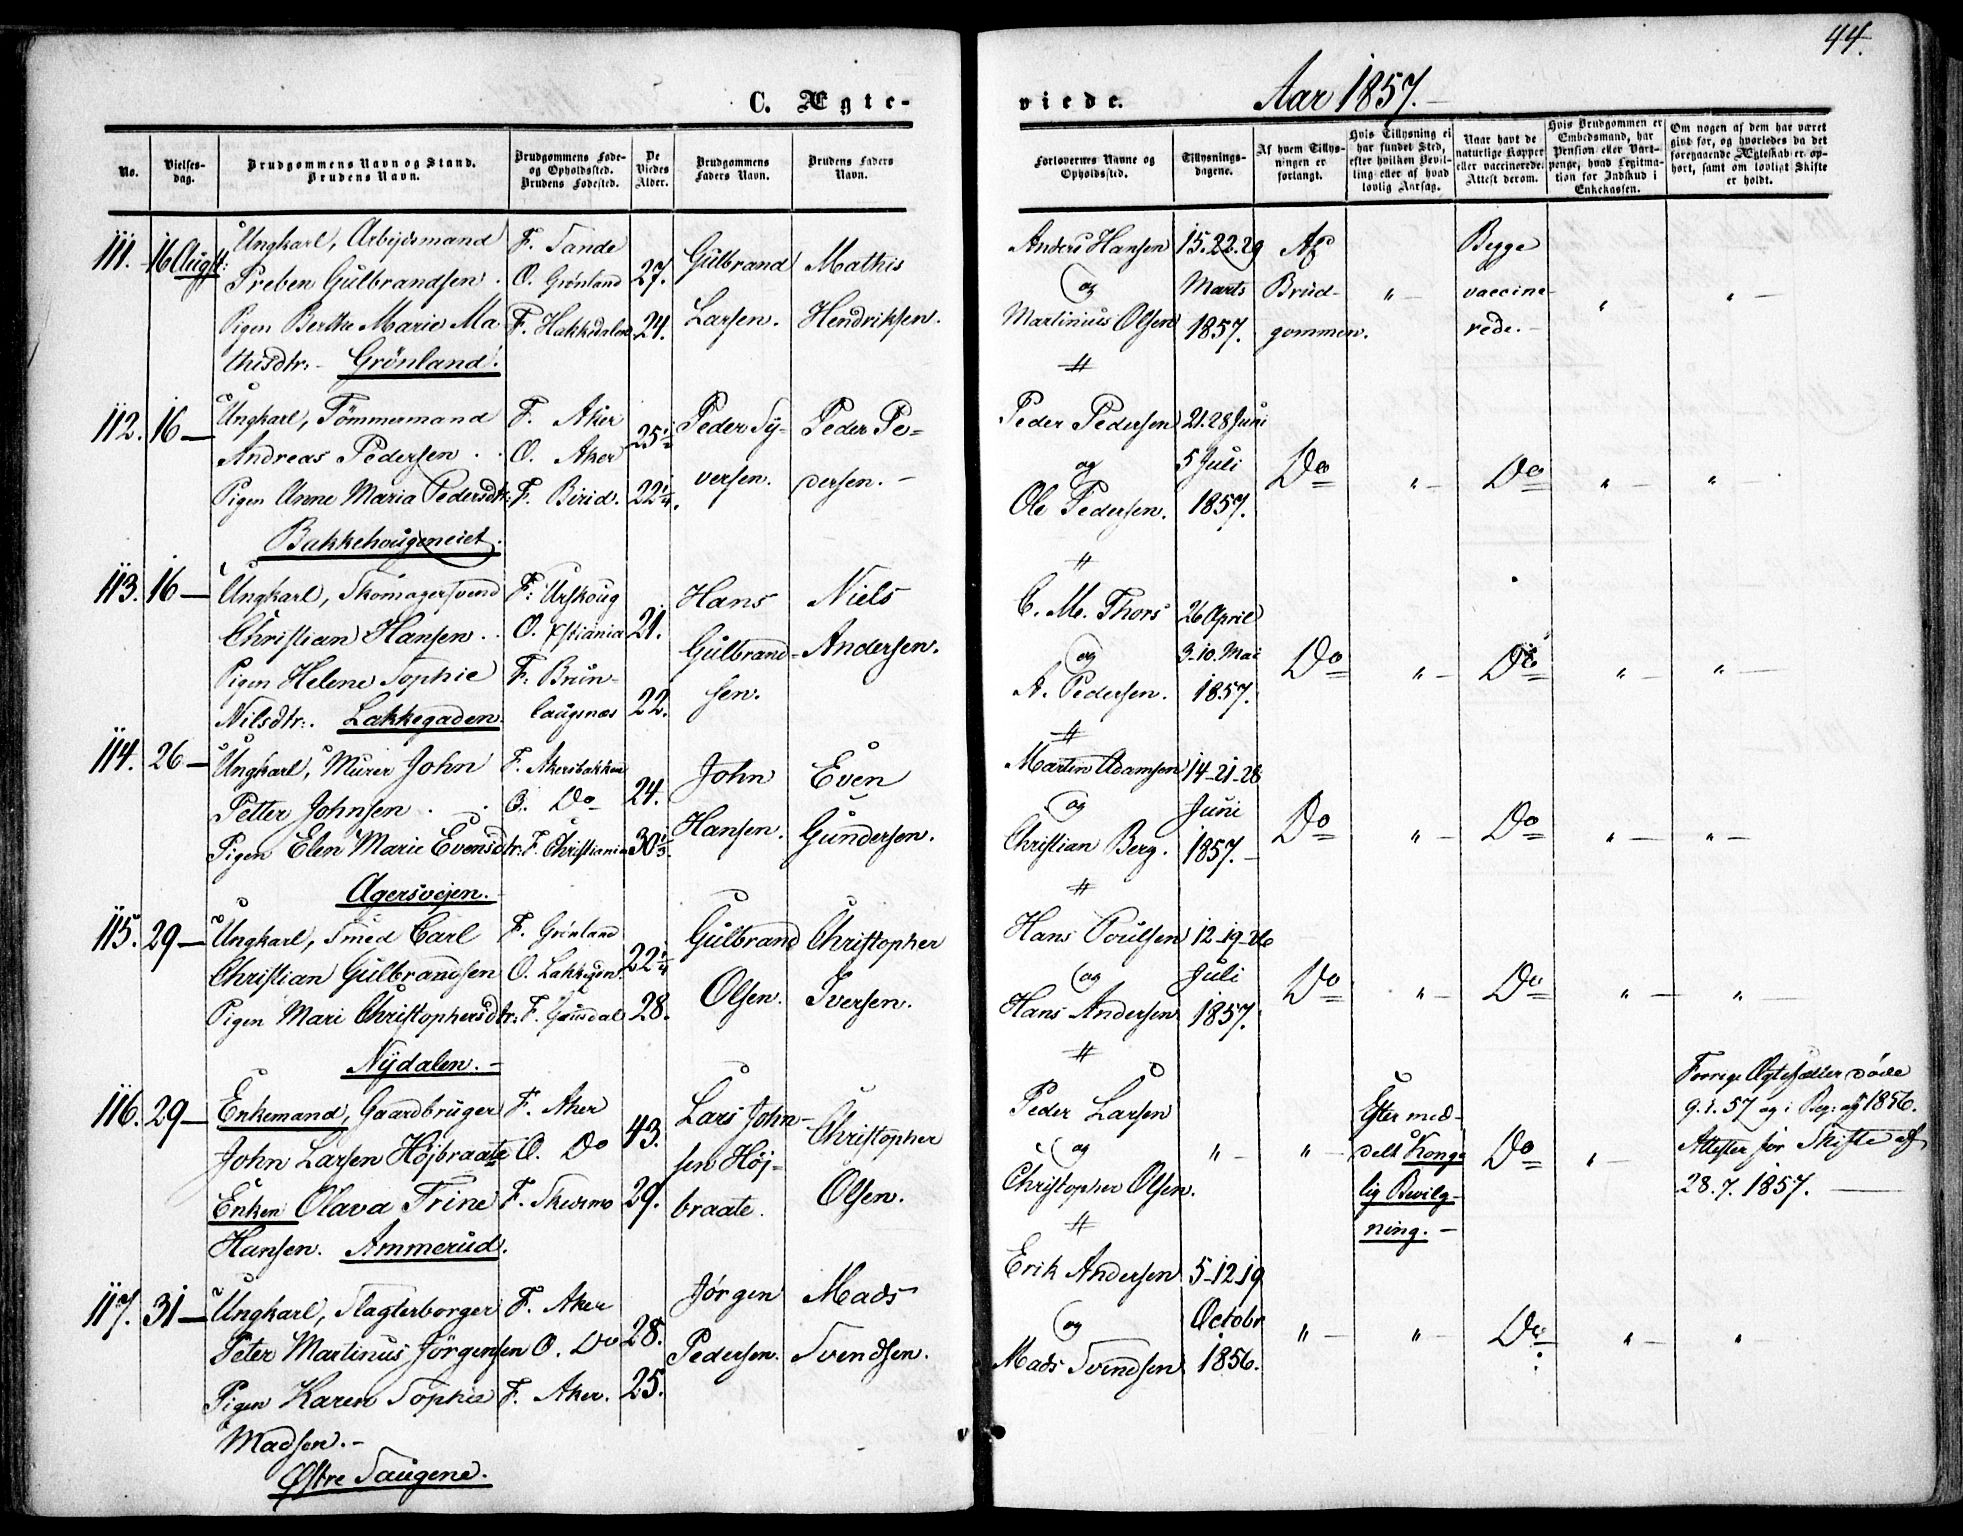 44.
C. Ægte-
viede.
Aar 1857.-
No.
Vielses-
dag.
Brudgommens Navn og Stand.
Brudens Navn.
Brudgommens Føde-
og Opholdssted.
Brudens Fødested.
De
Viedes
Alder.
Brudgommens
Faders Navn.
Brudens Faders
Navn.
Forlovernes Navne og
Opholdssted.
Tillysnings-
dagene.
Af hvem Tillys-
ningen er
forlangt.
Hvis Tillysning ei
har fundet Sted,
efter hvilken Bevil-
ling eller af hvad
lovlig Aarsag.
Naar havt de
naturlige Kopper
eller vaccinerede;
Attest derom.
Hvis Brudgommen er
Embedsmand, har
Pension eller Vart-
penge, hvad Legitima-
tion for Indskud i
Enkekassen.
Om nogen af dem har været
gift før, og hvorledes da det
foregaaende Ægteskab er op-
hørt, samt om lovligt Skifte
er holdt.
111. 16 Augst:
Ungkarl, Arbejdsmand
Preben Gulbrandsen .
Pigen Berthe Marie Ma
thisdtr:- Grönland.
F. Sande
O. Grønland
F. Hakkedalen
27.
24.
Gulbrand
Larsen.
Mathis
Hendriksen.
Anders Hansen
og
Martinius Olsen
15.22.29
Marts
1857.
Af
Brud-
gommen.
" -
Begge
vaccine-
rede.-
" -
" -
112. 16 -
Ungkarl, Tömmermand
Andreas Pedersen . .
Pigen Anne Maria Pedersdtr:
Bakkehougeneiet.
F. Aker
O. Aker
F. Birid.
25½
22¼.
Peder Sy-
versen.
Peder Pe-
dersen. -
Peder Pedersen
og
Ole Pedersen.
21.28 Juni
5 Juli
1857.
Do
" -
Do
" -
" -
113. 16 -
Ungkarl, Skomagersvend
Christian Hansen. .
Pigen Helene Sophie
Nilsdtr:. Lakkegaden.
F. Urskoug
O. Xstiania
F. Brun-
laugsnæs
21.
22.
Hans
Gulbrand-
sen.
Niels
Andersen.
C. M. Thors
og
A. Pedersen.
26 April
3-10. Mai
1857.
Do
" -
Do
" -
" -
114. 26 -
Ungkarl, Murer John
Petter Johnsen . .
Pigen Elen Marie Evensdtr:
Agersvejen.-
F. Akersbakken
O. Do
F. Christiania
24.
30⅓.
John
Hansen.
Even
Gundersen.
Martin Adamsen
og
Christian Berg.
14-21-28
Juni
1857.-
Do
" -
Do
" -
" -
115. 29 -
Ungkarl, Smed Carl
Christian Gulbrandsen
Pigen Mari Christophersdtr:
Nydalen. -
F. Grønland
O. Lakkegden.
F. Gausdal
22¼
28.
Gulbrand
Olsen.
Christopher
Iversen.
Hans Poulsen
og
Hans Andersen
12-19-26
Juli
1857.
Do
" -
Do
" -
" -
116. 29 -
Enkemand, Gaardbruger
John Larsen Höjbraate
Enken Olava Trine
Hansen. Ammerud.
F. Aker
O. Do
F. Skedsmo
43.
29.
Lars John-
sen Höj-
braate.
Christopher
Olsen.
Peder Larsen
og
Christopher Olsen.
" -
" -
Efter med-
delt Konge
lig Bevilg-
ning. -
Do
" -
Forrige Ægtefæller døde
9.1.57 og i Beg: af 1856.
Attester før Skifte af
28.7.1857. -
117. 31 -
Ungkarl, Slagterborger
Peter Martinus Jörgensen
Pigen Karen Sophie
Madsen.-
Østre Saugene.
F. Aker
O. Do
F. Aker.
28.
25.
Jørgen
Pedersen.
Mads
Svendsen.
Erik Andersen
og
Mads Svendsen
5-12-19
Octobr
1856.
" -
" -
Do
" -
"